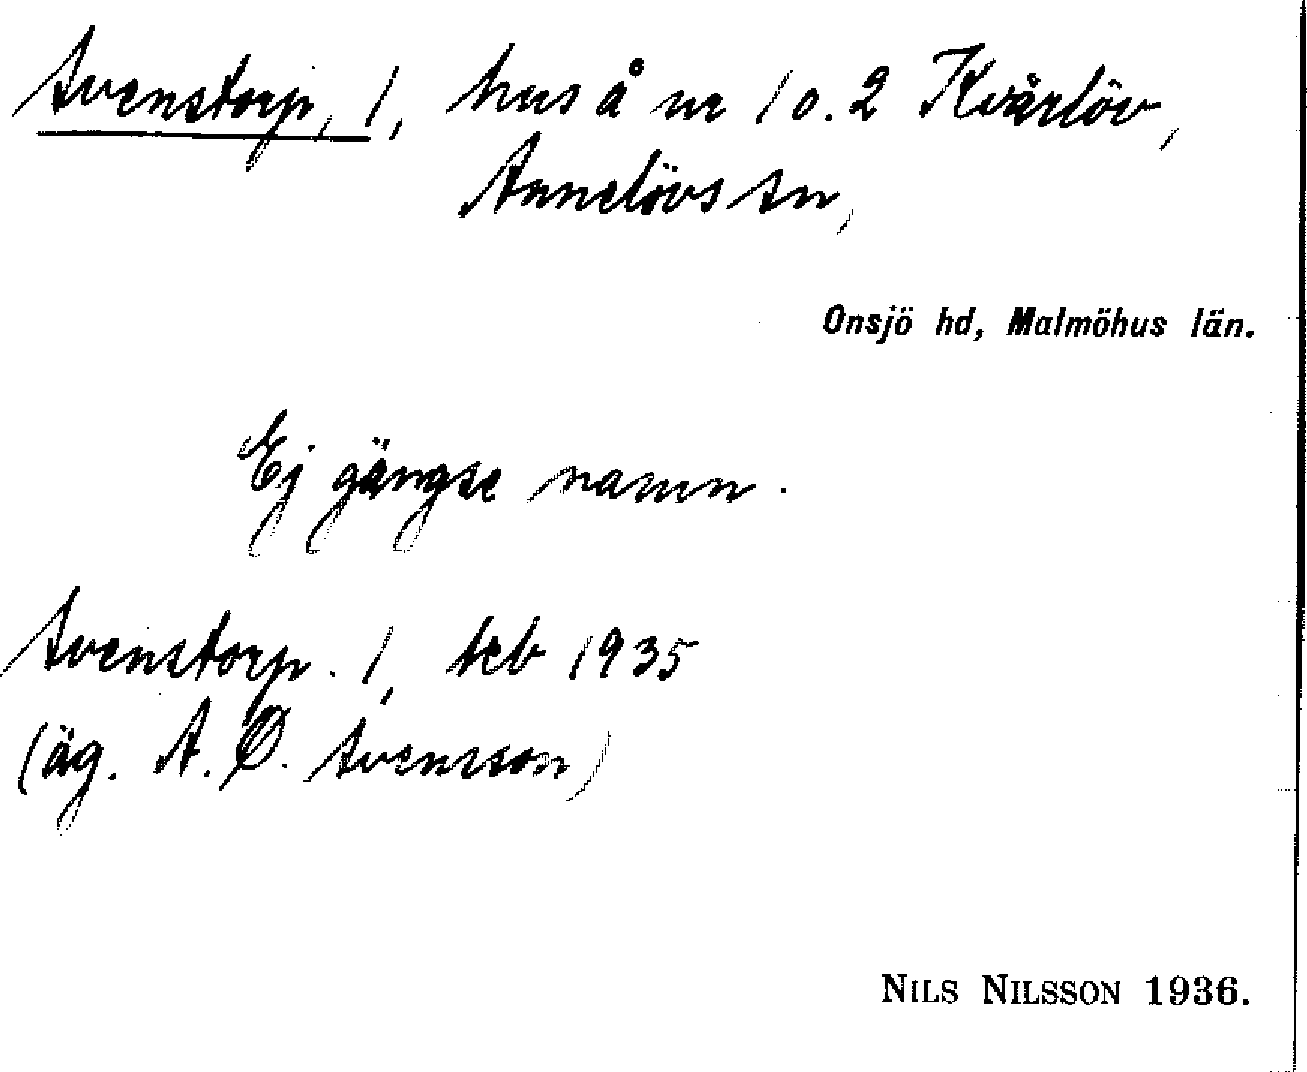 Svenstorp, 1, hus å nr 1 o. 2 Kvärlöv,
Annelövs sn,
Onsjö hd, Malmöhus län.
Ej gängse namn.
Svenstorp. 1, teb 1935
(äg. A. O. Svensson)
NILS NILSSON 1936.